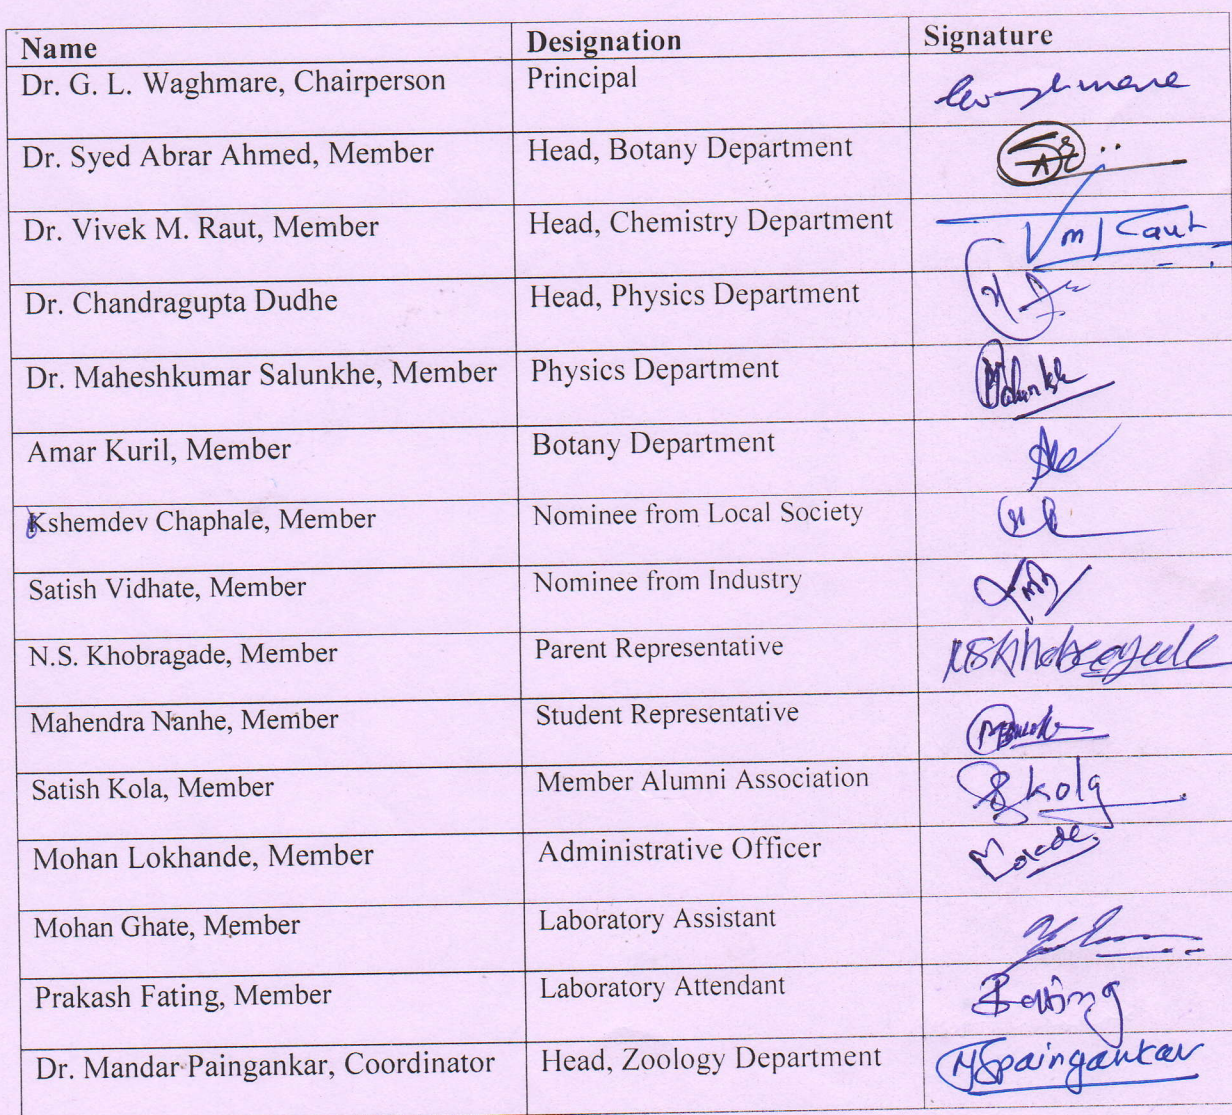 Name Designation Signature
Dr. G. L. Waghmare, Chairperson Principal
Dr. Syed Abrar Ahmed, Member Head, Botany Department
Dr. Vivek M. Raut, Member Head, Chemistry Department V m Raut
Dr. Chandragupta Dudhe Head, Physics Department
Dr. Maheshkumar Salunkhe, Member Physics Department
Amar Kuril, Member Botany Department
Kshemdev Chaphale, Member Nominee from Local Society
Satish Vidhate, Member Nominee from Industry
N.S. Khobragade, Member Parent Representative NSKhobragade
Mahendra Nanhe, Member Student Representative
Satish Kola, Member Member Alumni Association Skola
Mohan Lokhande, Member Administrative Officer
Mohan Ghate, Member Laboratory Assistant
Prakash Fating, Member Laboratory Attendant Fating
Dr. Mandar Paingankar, Coordinator Head, Zoology Department MSpaingankar